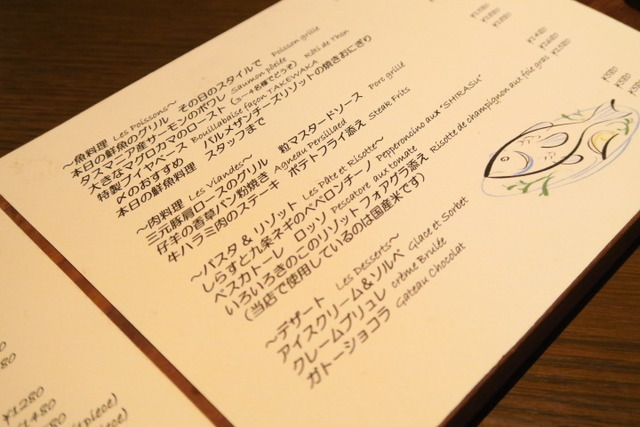 ～魚料理 Les Poissons～
本日の鮮魚のグリル その日のスタイルで Poisson grille
タスマニア産サーモンのポワレ Saumon pôelée
大きなマグロカマのロースト (3～4名様でどうぞ) Rôti de Thon
特製ブイヤベース Bouillabaise façon TAKEWAKA
〆のおすすめ パルメザンチーズリゾットの焼きおにぎり
本日の鮮魚料理 スタッフまで
～肉料理 Les Viandes～
三元豚肩ロースのグリル 粒マスタードソース Porc grillé
仔羊の香草パン粉焼き Agneau Persillaed
牛ハラミ肉のステーキ ポテトフライ添え Steak Frits
～パスタ & リゾット Les Pâte et Risotte～
しらすと九条ネギのペペロンチーノ Pepperoncino aux "SHIRASU"
ペスカトーレ ロッソ Pescatore aux tomate
いろいろきのこのリゾットフォアグラ添え Risotte de champignon aux foie gras
(当店で使用しているのは国産米です)
～デザート Les Desserts～
アイスクリーム&ソルベ Glace et Sorbet
クレームブリュレ crème Brulée
ガトーショコラ Gateau Chocolat
¥1280
¥1480